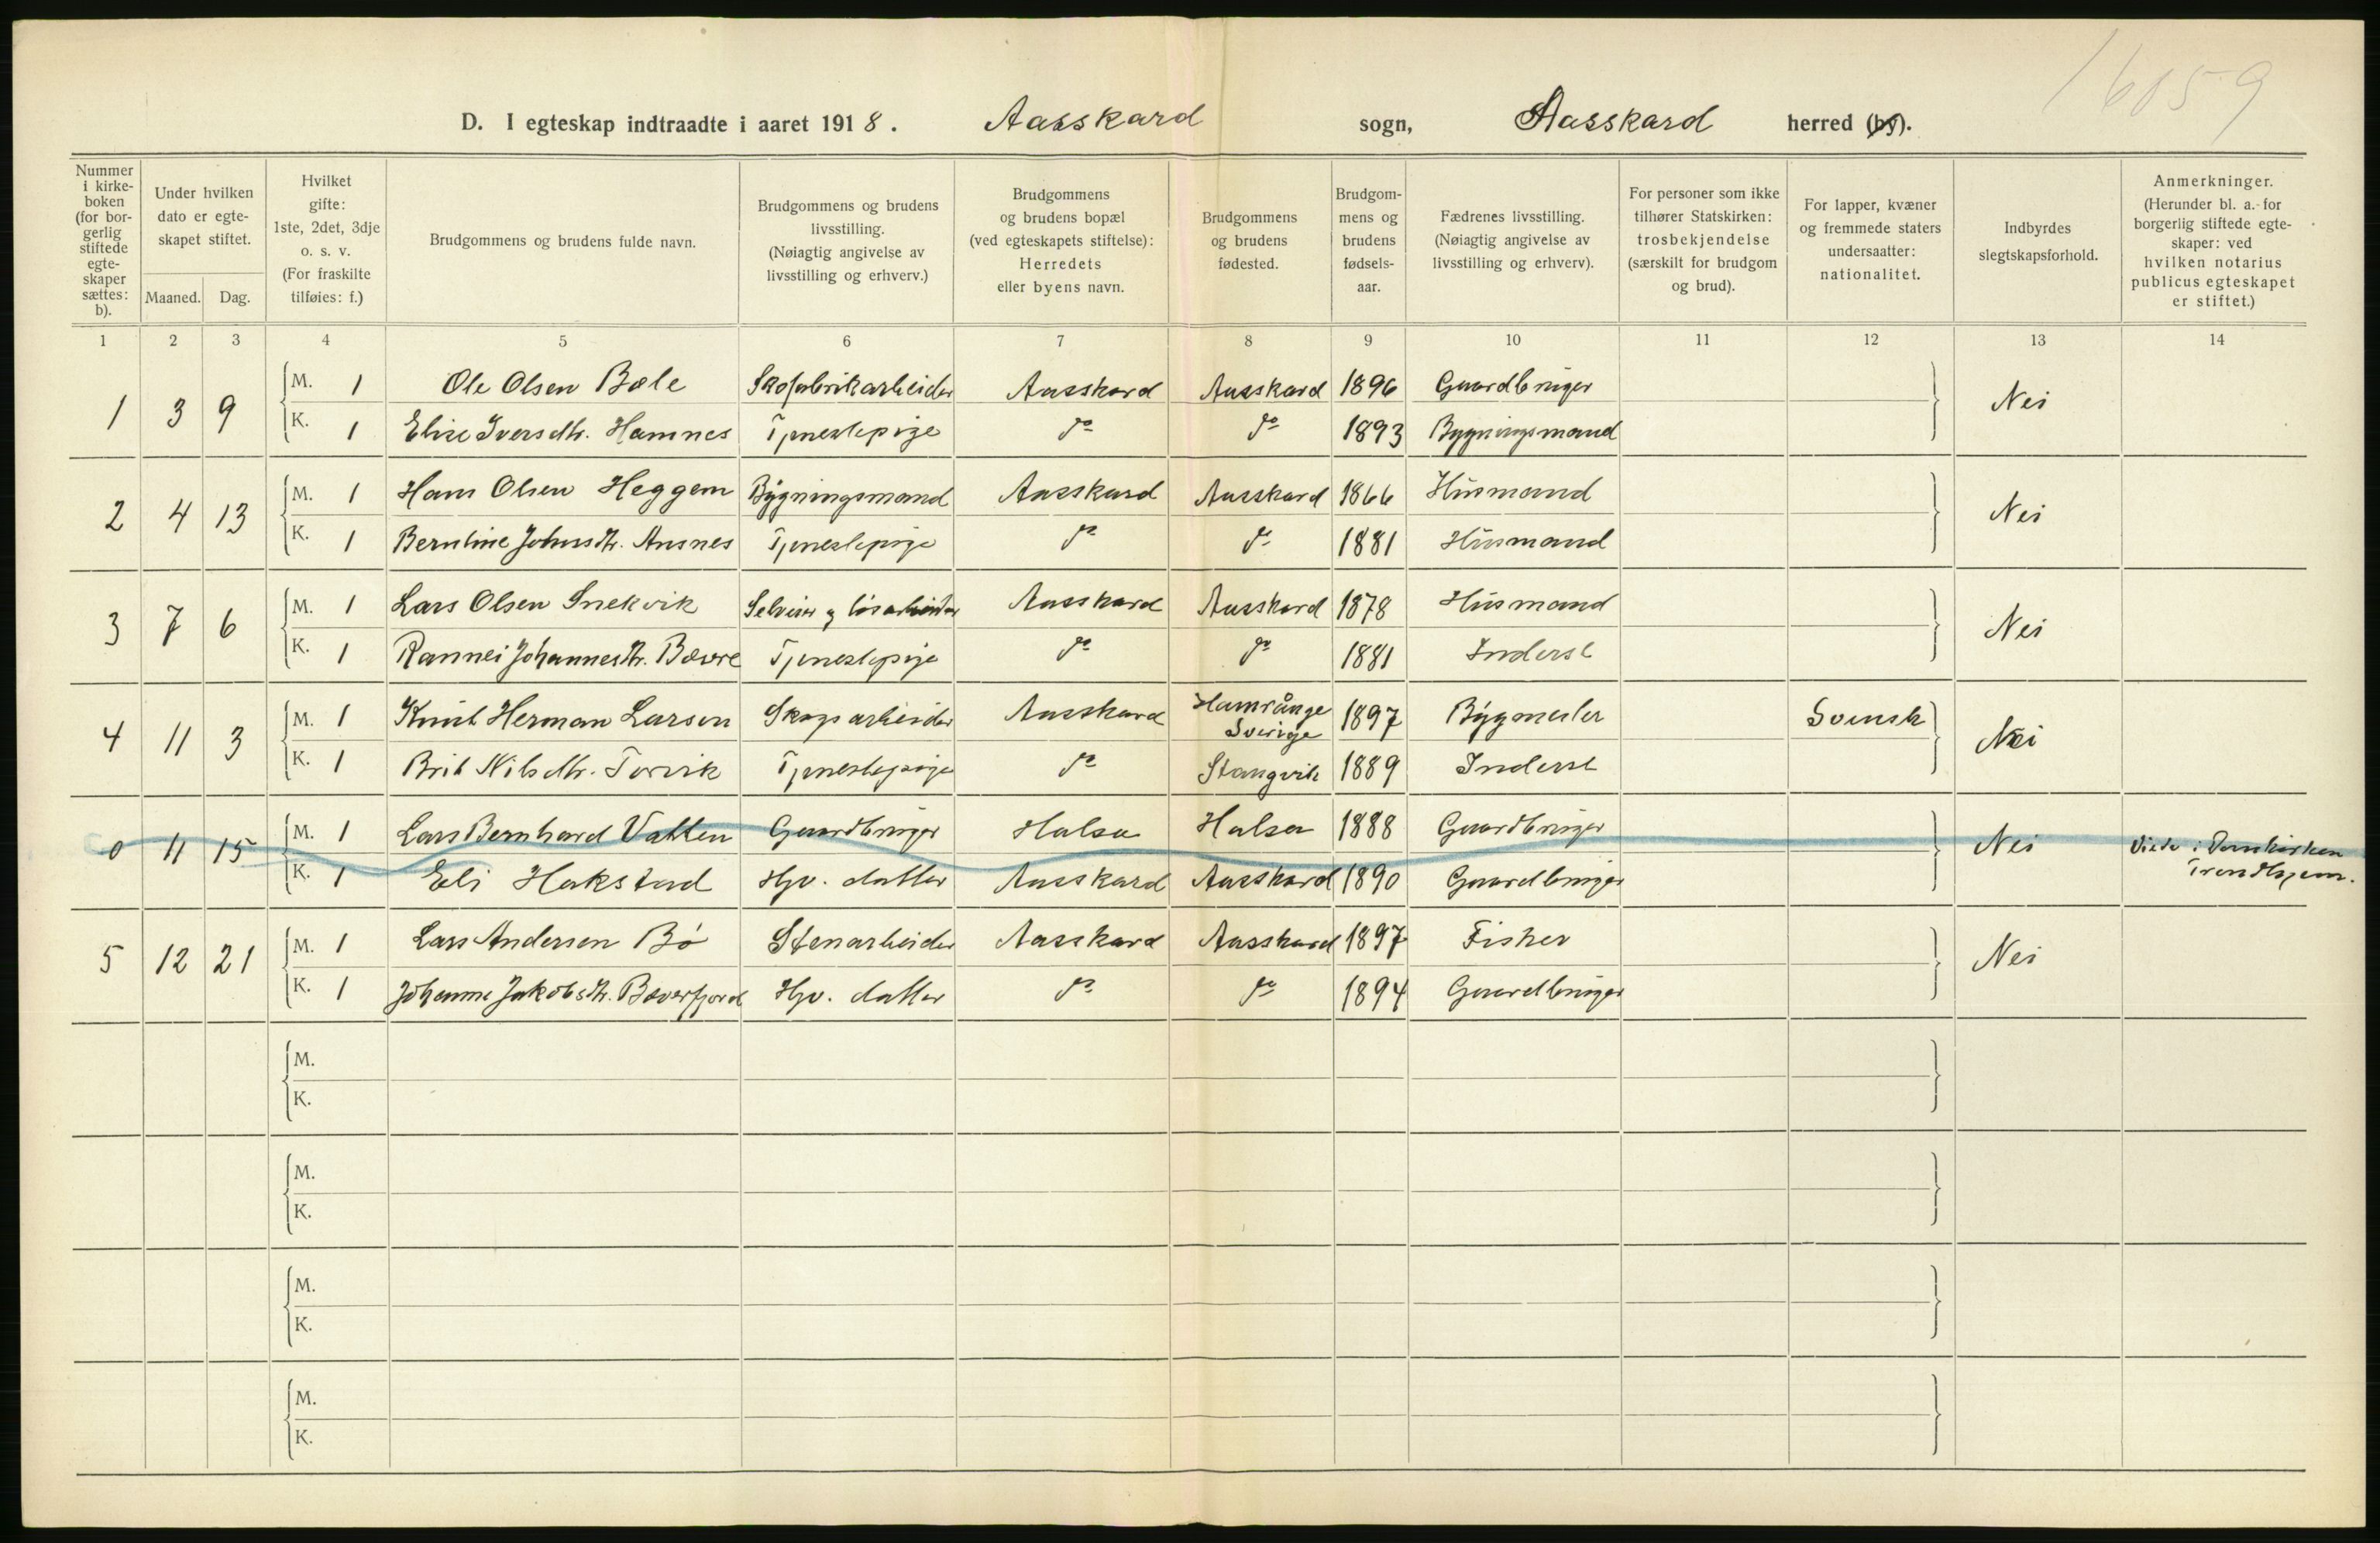 16059
D. I egteskap indtraadte i aaret 1918. Aasskard sogn, Aasskard herred (by).
Nummer i kirke-boken (for bor-gerlig stiftede egte-skaper sættes: b).
Under hvilken dato er egte-skapet stiftet.
Maaned. Dag.
Hvilket gifte: 1ste, 2det, 3dje o. s. v. (For fraskilte tilføies: f.)
Brudgommens og brudens fulde navn.
Brudgommens og brudens livsstilling. (Nøiagtig angivelse av livsstilling og erhverv.)
Brudgommens og brudens bopæl (ved egteskapets stiftelse): Herredets eller byens navn.
Brudgommens og brudens fødested.
Brudgom-mens og brudens fødsels-aar.
Fædrenes livsstilling. (Nøiagtig angivelse av livsstilling og erhverv).
For personer som ikke tilhører Statskirken: trosbekjendelse (særskilt for brudgom og brud).
For lapper, kvæner og fremmede staters undersaatter: nationalitet.
Indbyrdes slegtskapsforhold.
Anmerkninger. (Herunder bl. a. for borgerlig stiftede egte-skaper: ved hvilken notarius publicus egteskapet er stiftet.)
1 2 3 4 5 6 7 8 9 10 11 12 13 14
1 3 9 M. 1 Ole Olsen Bøle Skofabrikarbeider Aasskard Aasskard 1896 Gaardbruger Nei
K. 1 Elise Iversdtr. Hamnes Tjenestepige do do 1893 Bygningsmand
2 4 13 M. 1 Hans Olsen Heggem Bygningsmand Aasskard Aasskard 1866 Husmand Nei
K. 1 Berntine Johnsdtr. Ansnes Tjenestepige do do 1881 Husmand
3 7 6 M. 1 Lars Olsen Snekvik Selveier og løsarbeider Aasskard Aasskard 1878 Husmand Nei
K. 1 Rannei Johannesdtr. Bævre Tjenestepige do do 1881 Inderst
4 11 3 M. 1 Knut Herman Larson Skogsarbeider Aasskard Hamrånge Sverige 1897 Bygmester Svensk Nei
K. 1 Brit Nilsdtr. Torvik Tjenestepige do Stangvik 1889 Inderst
0 11 15 M. 1 Lars Bernhard Vatten Gaardbruger Halsa Halsa 1888 Gaardbruger Nei Viede i Domkirken
K. 1 Eli Hakstad Gjv. datter Aasskard Aasskard 1890 Gaardbruger Trondhjem.
5 12 21 M. 1 Lars Andersen Bø Stenarbeider Aasskard Aasskard 1897 Fisker Nei
K. 1 Johanne Jakobsdtr. Bæverfjord Gjv. datter do do 1894 Gaardbruger
M.
K.
M.
K.
M.
K.
M.
K.